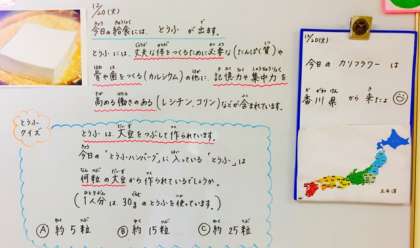 12/20(火)
今日の給食には とうふ が 出ます。
とうふ には、丈夫な体をつくるために大事な(たんぱく質)や
骨や歯をつくる(カルシウム)の他に、記憶力や集中力を
高める働きのある(レシチン、コリン)などが含まれています。
とうふ
クイズ
とうふ は 大豆をつぶして 作られています。
今日の "とうふハンバーグ" に 入っている "とうふ" は
何粒の大豆 から 作られているでしょうか。
(1人分 は 30g の とうふを 使っています。)
Ⓐ 約 5 粒
Ⓑ 約 15 粒
Ⓒ 約 25 粒
12/20(火)
今日 の カリフラワー は
香川県 から 来たよ